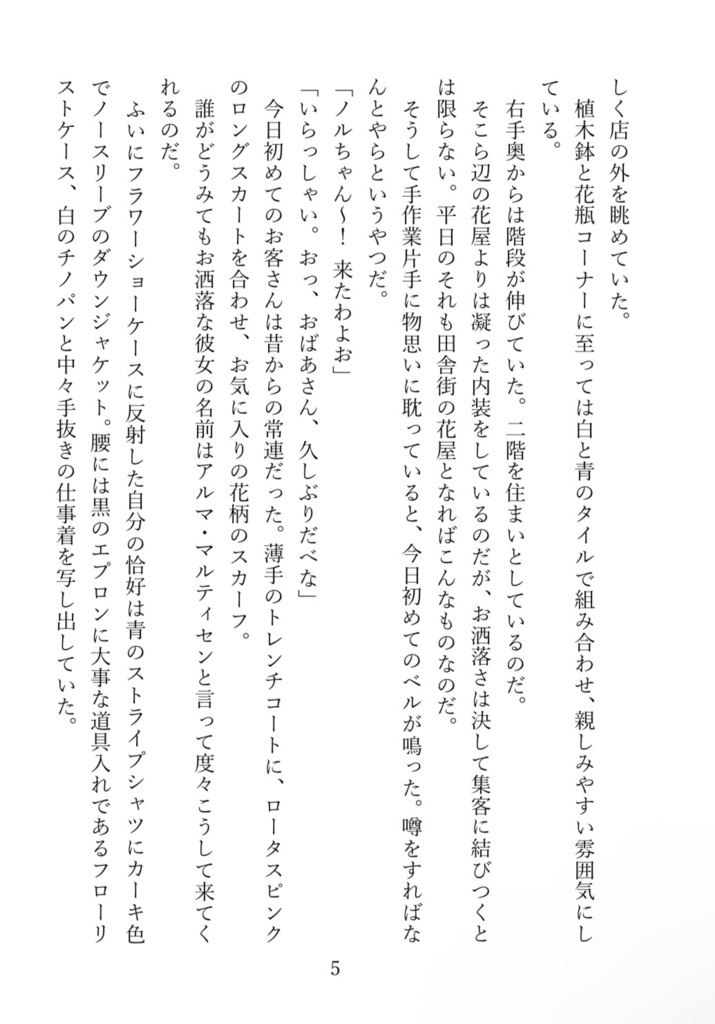 しく店の外を眺めていた。
　植木鉢と花瓶コーナーに至っては白と青のタイルで組み合わせ、親しみやすい雰囲気にし
ている。
　右手奥からは階段が伸びていた。二階を住まいとしているのだ。
　そこら辺の花屋よりは凝った内装をしているのだが、お洒落さは決して集客に結びつくと
は限らない。平日のそれも田舎街の花屋となればこんなものなのだ。
　そうして手作業片手に物思いに耽っていると、今日初めてのベルが鳴った。噂をすればな
んとやらというやつだ。
「ノルちゃん〜！　来たわよお」
「いらっしゃい。おっ、おばあさん、久しぶりだべな」
　今日初めてのお客さんは昔からの常連だった。薄手のトレンチコートに、ロータスピンク
のロングスカートを合わせ、お気に入りの花柄のスカーフ。
　誰がどうみてもお洒落な彼女の名前はアルマ・マルティセンと言って度々こうして来てく
れるのだ。
　ふいにフラワーショーケースに反射した自分の恰好は青のストライプシャツにカーキ色
でノースリーブのダウンジャケット。腰には黒のエプロンに大事な道具入れであるフローリ
ストケース、白のチノパンと中々手抜きの仕事着を写し出していた。
5